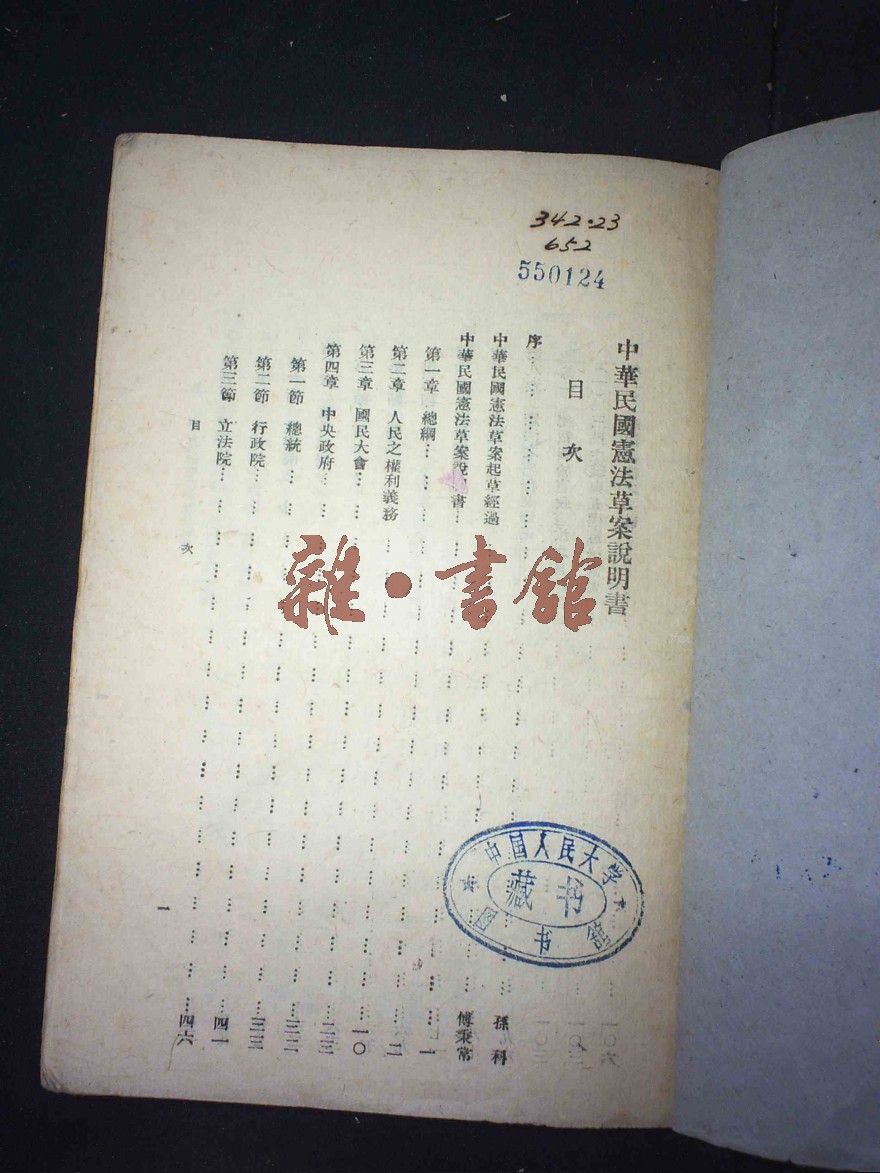 342.23
652
550124
中華民國憲法草案說明書
目次
序……孫科
中華民國憲法草案起草經過……傅秉常
中華民國憲法草案說明書……一
第一章 總綱……二
第二章 人民之權利義務……一〇
第三章 國民大會……二三
第四章 中央政府……三二
第一節 總統……三三
第二節 行政院……四一
第三節 立法院……四六
目次
一
雜·書館
中国人民大学
图书舘
藏书